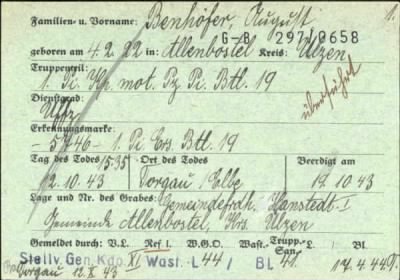 Familien- u. Vorname: Benhöfer, August 1.
G-B 297/0658
geboren am 4.2.22 in: Allenbostel Kreis: Ülzen
Truppenteil:
1. Pi. Kp. mot. Pz. Pi. Btl. 19
überführt
Dienstgrad:
Uffz.
Erkennungsmarke:
-5746- 1. Pi. Ers. Btl. 19
Tag des Todes 1535 Ort des Todes Beerdigt am
12.10.43 Torgau/Elbe 19.10.43
Lage und Nr. des Grabes: Gemeindefrdh. Hanstedt I
Gemeinde Allenbostel, Krs. Ülzen
Gemeldet durch: V.L. Ref I. W.G.O. Wast.- Trupp.- San.-
Stellv. Gen. Kdo. XI Wast. L 44 / Bl 42 17.4.44
Torgau 12.X.43